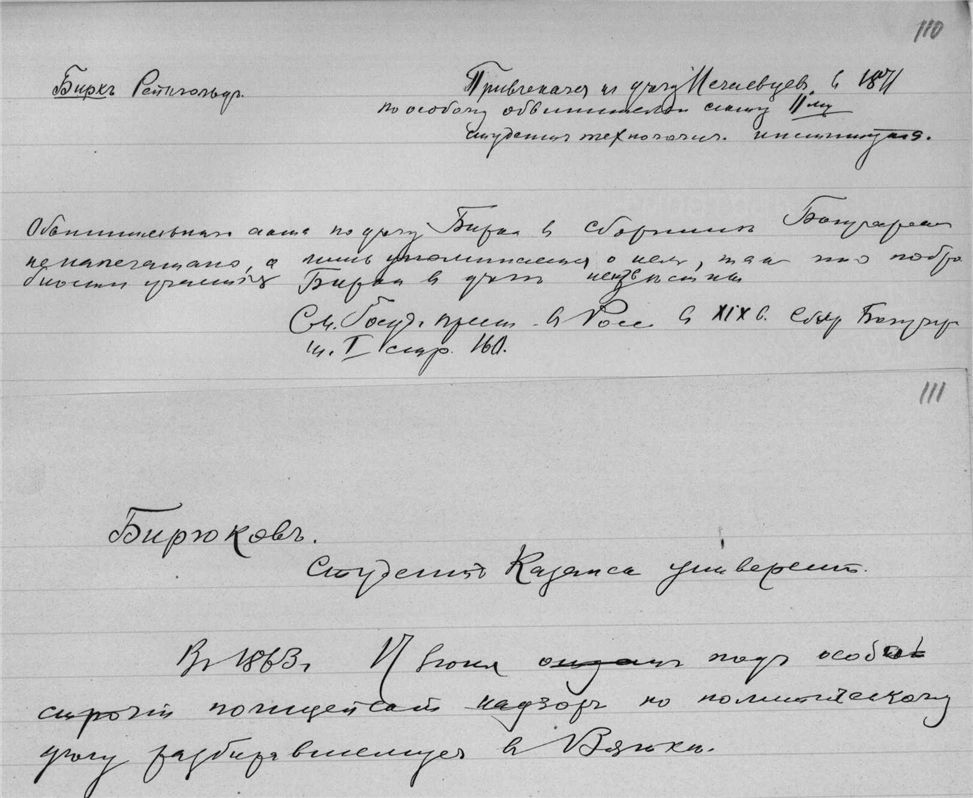 110
Бирхъ Рейнгольдъ.
Привлекался къ делу Нечаевцев. в 1871
по особому обвинительном акту II му
студентъ технологич. института.
Обвинительный акта по делу Бирха в сборнике Богучарскаго
не напечатано, а лишь упоминается о нем, так что подро
бности участія Бирха в деле неизвестны
См. Госуд. прест. в Росс в XIX в. Сбор Богучар
т. I стр. 160.
111
Бирюковъ.
Студентъ Казанск университ.
Въ 1863 г. 17 июня отданъ подъ особый
строгій полицейскій надзоръ по политическому
делу разбиравшемуся в Вятке.